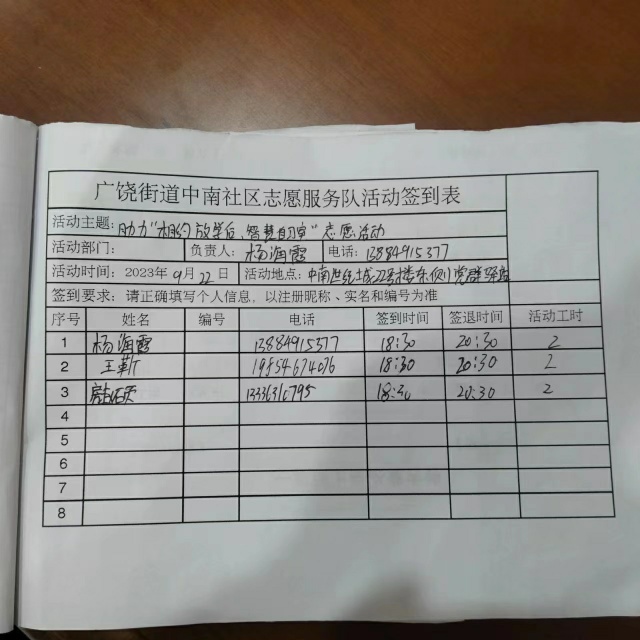 广饶街道中南社区志愿服务队活动签到表
活动主题: 助力"相约放学后 智慧自习室"志愿活动
活动部门: 负责人: 杨润霞 电话: 13884915377
活动时间: 2023年9月22日 活动地点: 中南世纪城22号楼东侧
签到要求: 请正确填写个人信息, 以注册昵称、实名和编号为准
序号 姓名 编号 电话 签到时间 签退时间 活动工时
1 杨润霞 13884915377 18:30 20:30 2
2 王靳 19854674076 18:30 20:30 2
3 18:30 20:30 2
4
5
6
7
8